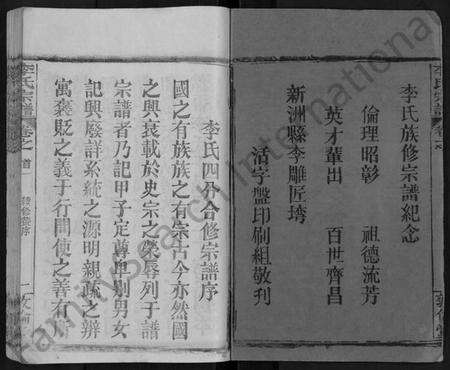 李氏族修宗譜紀念
倫理昭彰　祖德流芳
英才輩出　百世齊昌
新洲縣李雕匠塆
活字盤印刷組敬刊
李氏四分合修宗譜序
國之有族族之有宗古今亦然國
之興衰載於史宗之榮辱列于譜
宗譜者乃記甲子定尊卑別男女
記興廢詳系統之源明親疏之辨
寓褒貶之義于行間使之善有所
李氏宗譜
卷之首
FamilySearch International